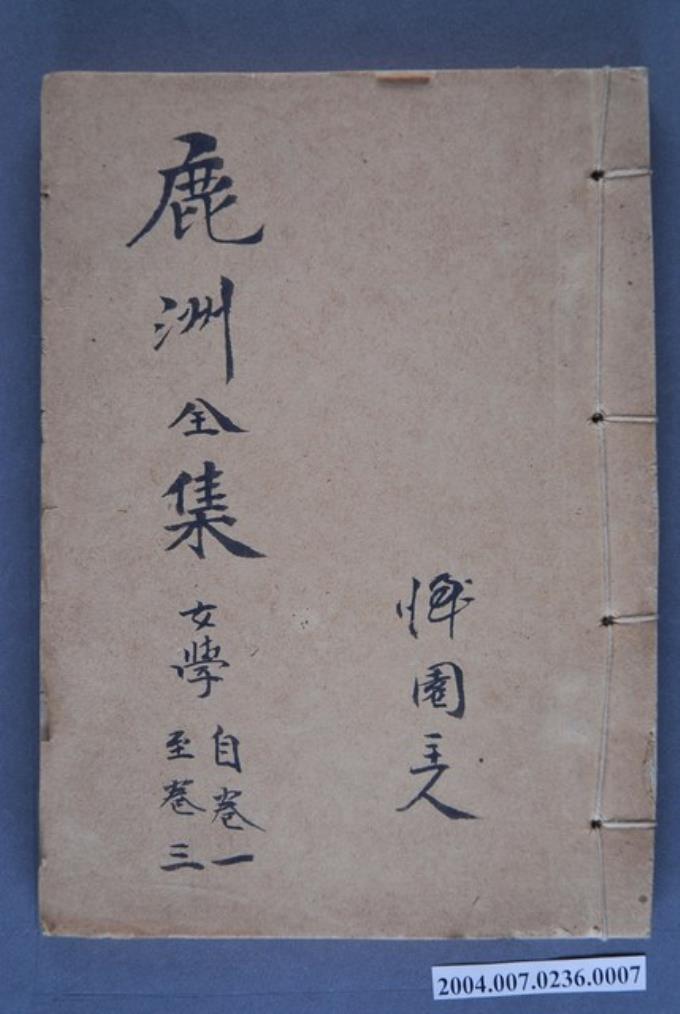 園主人
鹿洲全集 女學
自卷一
至卷三
2004.007.0236.0007